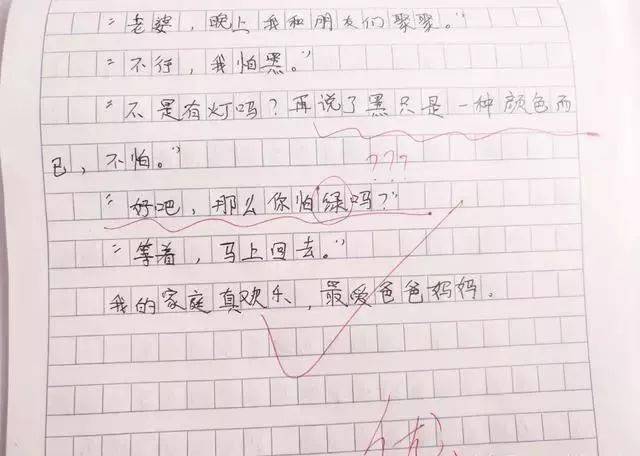 “老婆，晚上我和朋友们聚聚。”
“不行，我怕黑。”
“不是有灯吗？再说了黑只是一种颜色而
已，不怕。”
???
“好吧，那么你怕绿吗？”
“等着，马上回去。”
我的家庭真欢乐，最爱爸爸妈妈。